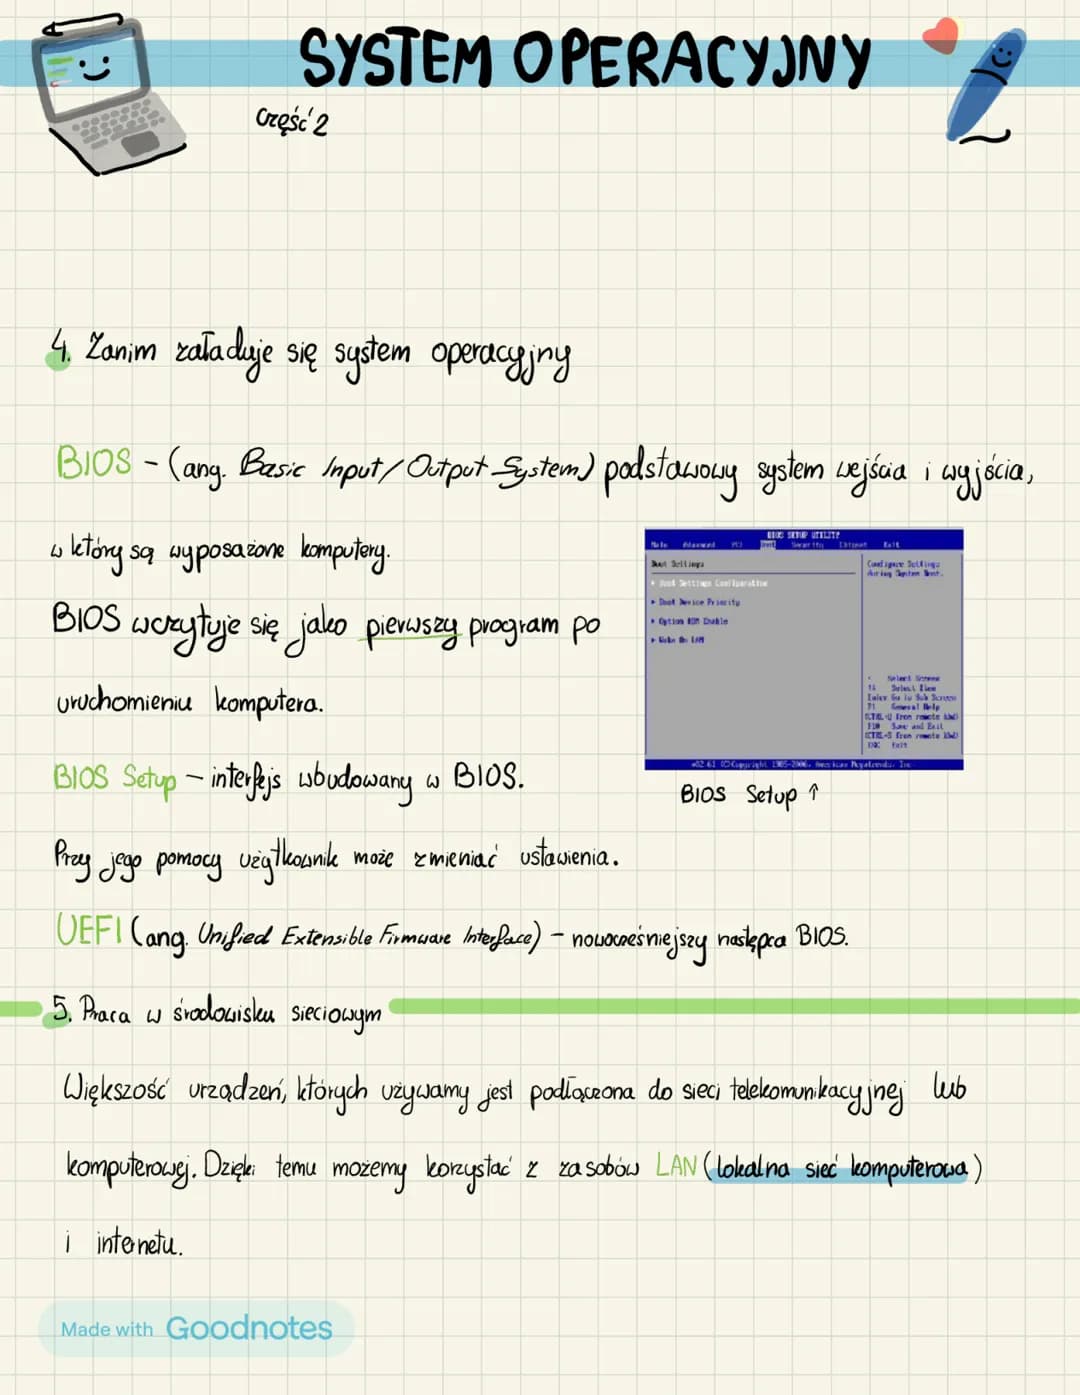 SYSTEM OPERACYJNY
część 2
4. Zanim załaduje się system operacyjny
BIOS - (ang. Basic Input/Output System) podstawowy system wejścia i wyjścia,
w który są wyposażone komputery.
BIOS wczytuje się jako pierwszy program po
uruchomieniu komputera.
BIOS SETUP UTILITY
Main Advanced PCI Boot Security Chipset Exit
Boot Settings
Boot Settings Configuration
Boot Device Priority
Option ROM Enable
Wake On LAN
Configure Settings
during System Boot.
Select Screen
Select Item
Enter Go to Sub Screen
F1 General Help
(CTRL+Q from remote kbd)
F10 Save and Exit
(CTRL+S from remote kbd)
ESC Exit
v02.61 (C)Copyright 1985-2006, American Megatrends, Inc
BIOS Setup ↑
BIOS Setup - interfejs wbudowany w BIOS.
Przy jego pomocy użytkownik może zmieniać ustawienia.
UEFI (ang. Unified Extensible Firmware Interface) - nowocześniejszy następca BIOS.
5. Praca w środowisku sieciowym
Większość urządzeń, których używamy jest podłączona do sieci telekomunikacyjnej lub
komputerowej. Dzięki temu możemy korzystać z zasobów LAN (lokalna sieć komputerowa)
i internetu.
Made with Goodnotes